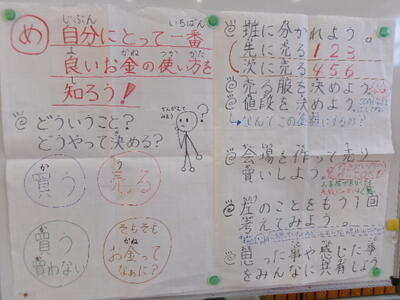 め
自分にとって一番
じぶん いちばん
良いお金の使い方を
よ かね つか かた
知ろう!
し
どういうこと?
どうやって決める?
買う
か
売る
う
買う
か
買わない
そもそも
お金って
かね
なぁに?
班に分かれよう。
先に売る 1 2 3
次に売る 4 5 6
売る服を決めよう
値段を決めよう。
なんでこの金額にするの?
会場を作って売り
買いしよう。
左のことをもう1回
考えてみよう。
思った事や感じた事
をみんなに共有しよう